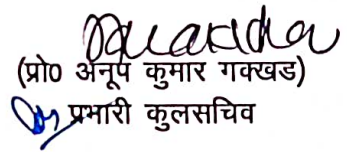 (प्रो० अनूप कुमार गक्खड)
प्रभारी कुलसचिव